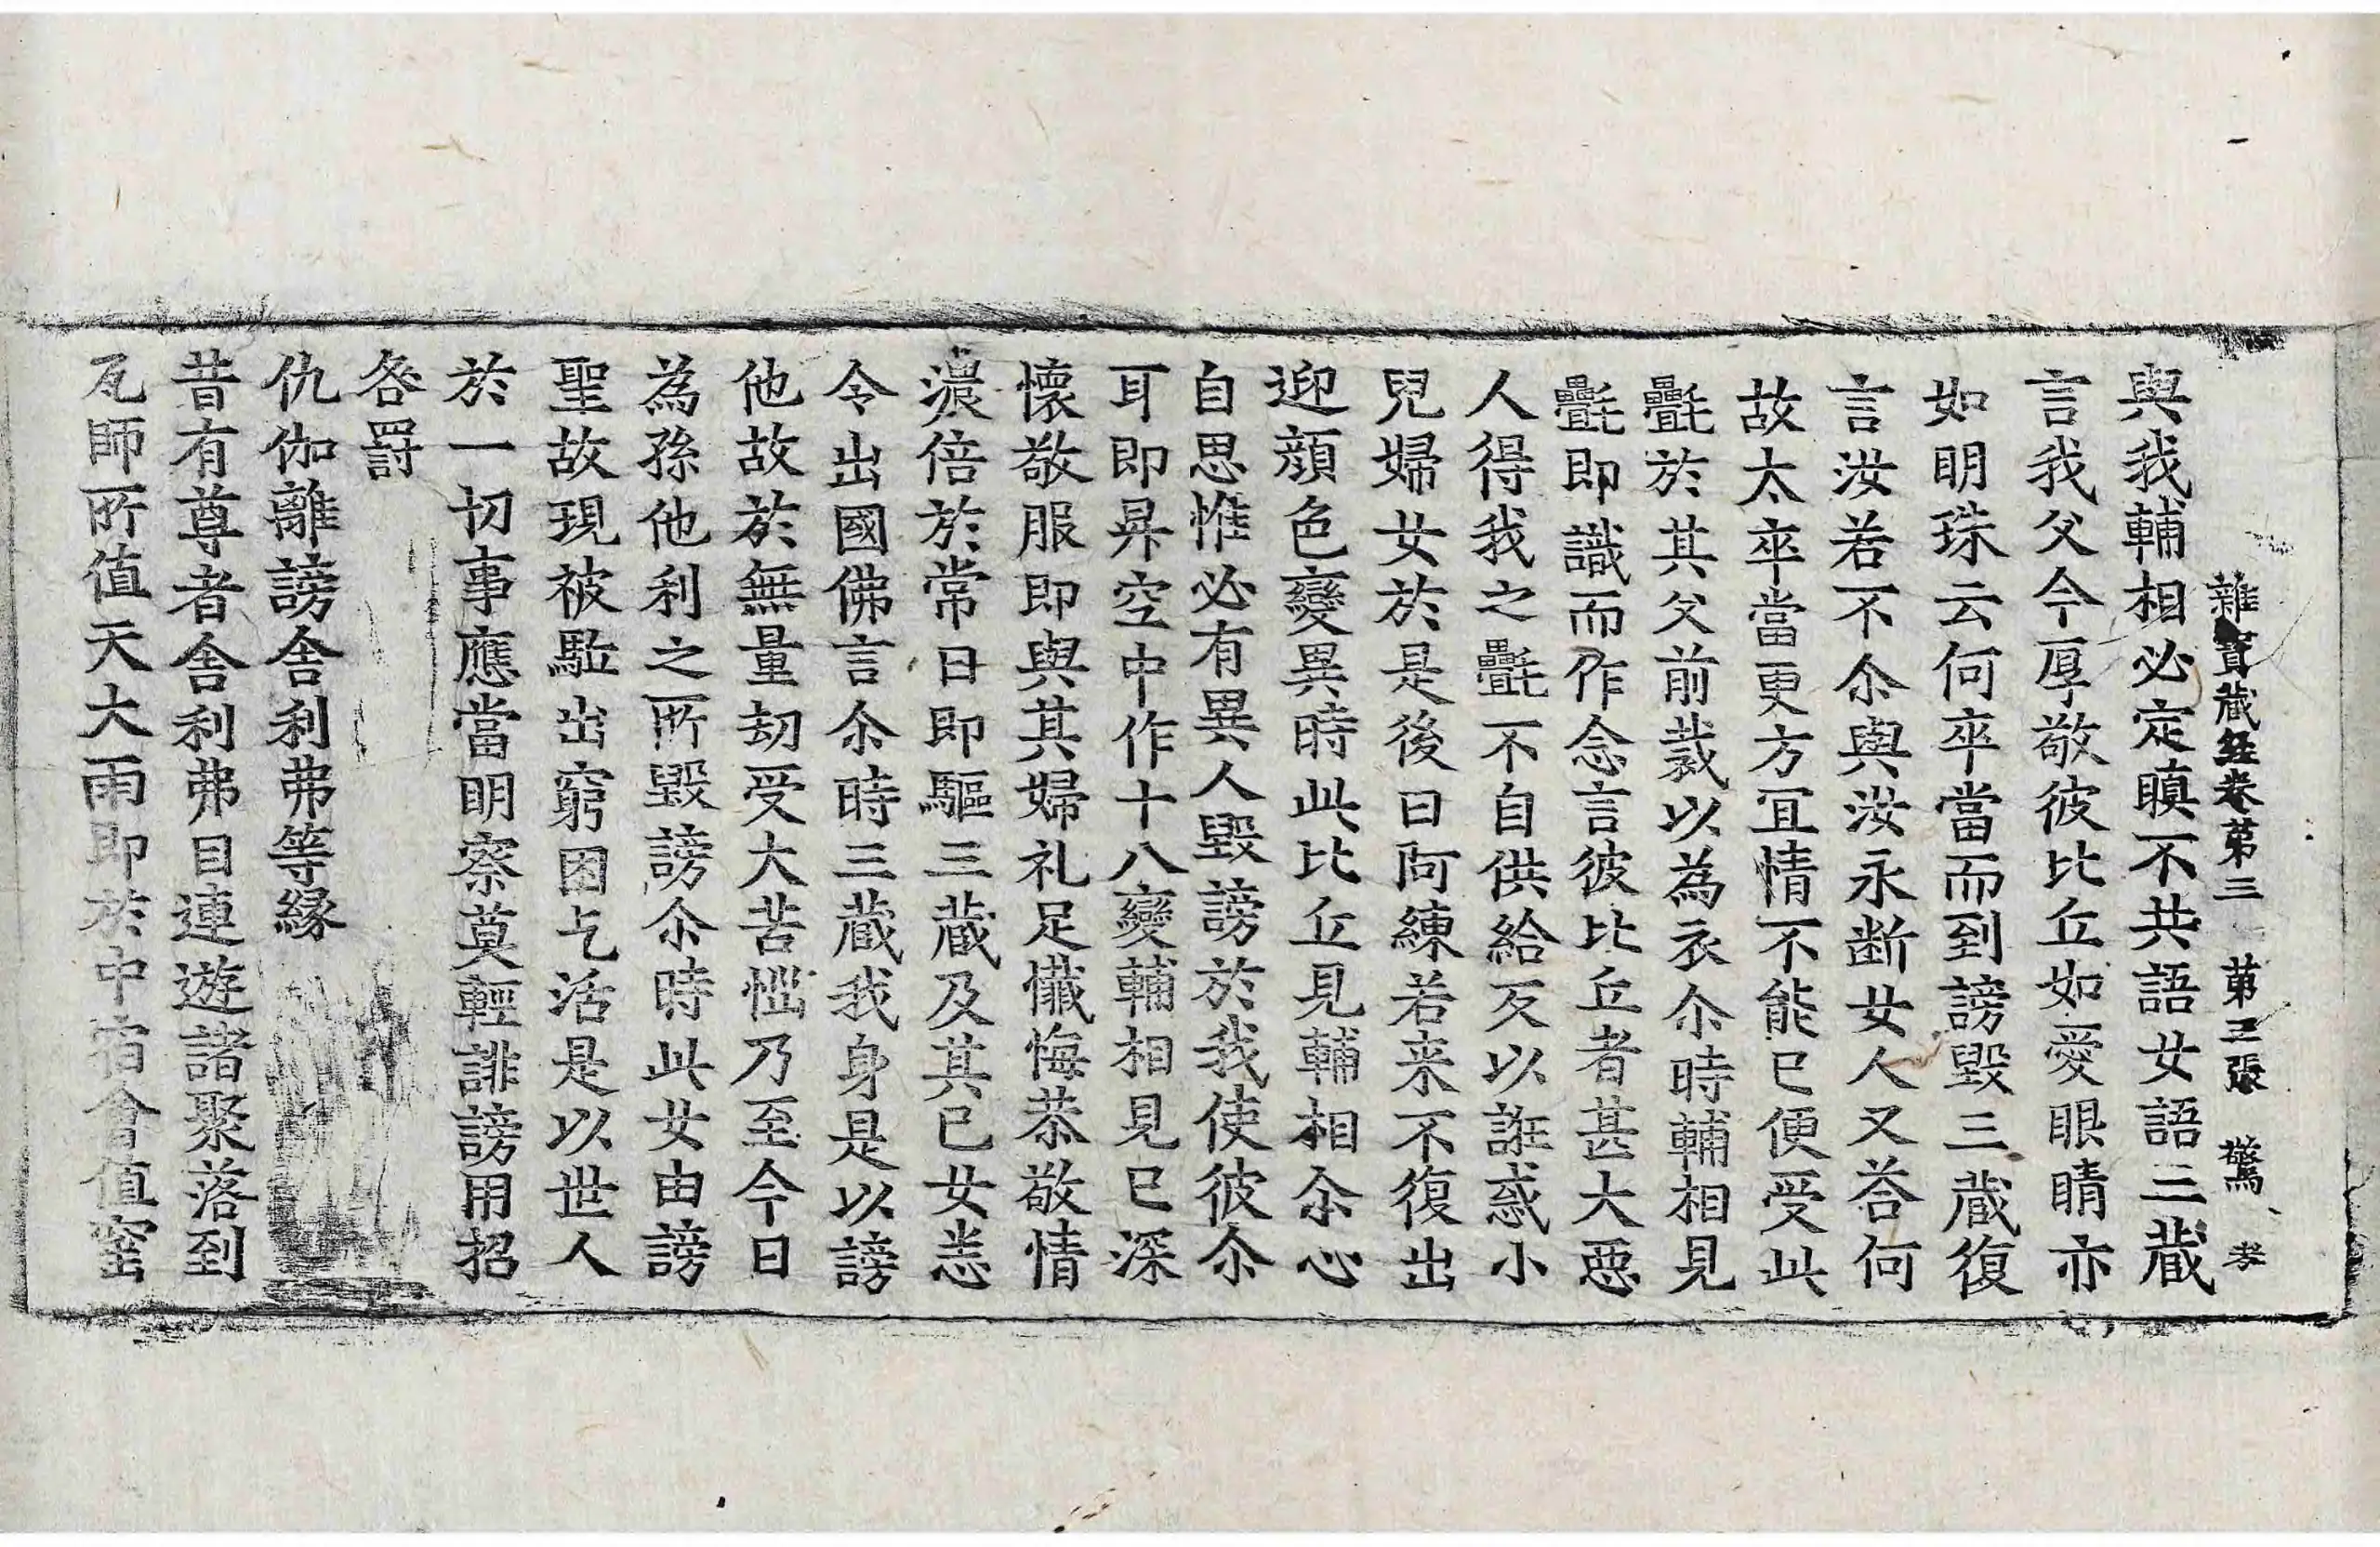 雜寶藏經卷第三 第三張 驚 孝
與我輔相必定瞋不共語女語三藏
言我父今厚敬彼比丘如愛眼睛亦
如明珠云何卒當而到謗毀三藏復
言汝若不尒與汝永断女人又荅何
故太卒當更方冝情不能已便受此
㲲於其父前裁以為衣尒時輔相見
㲲即識而作念言彼比丘者甚大惡
人得我之㲲不自供給反以誑惑小
兒婦女於是後日阿練若来不復出
迎顔色變異時此比丘見輔相尒心
自思惟必有異人毀謗於我使彼尒
耳即昇空中作十八變輔相見已深
懷敬服即與其婦礼足懺悔恭敬情
濃倍於常日即驅三藏及其已女恙
令出國佛言尒時三藏我身是以謗
他故於無量劫受大苦惱乃至今日
為孫他利之所毀謗尒時此女由謗
聖故現被駈出窮困乞活是以世人
於一切事應當明察莫輕誹謗用招
咎罸
仇伽離謗舍利弗等緣
昔有尊者舍利弗目連遊諸聚落到
瓦師所值天大雨即於中宿會值窑